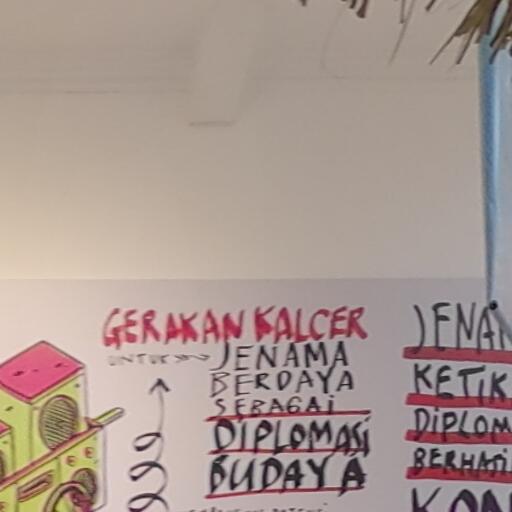 GERAKAN KALCER
UNTUK
JENAMA
BERDAYA
SEBAGAI
DIPLOMASI
BUDAYA
JENA
KETIK
DIPLOM
BERHATI
KON